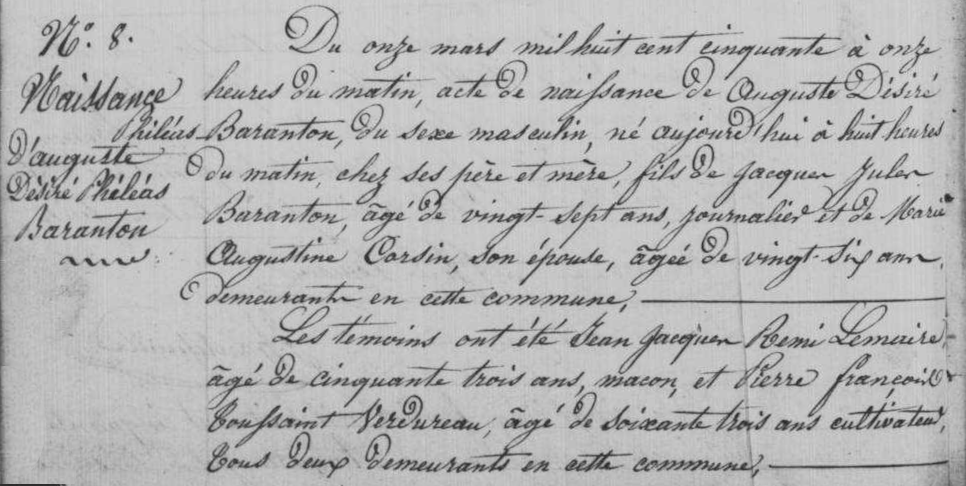 N.° 8.
Naissance
D'auguste
Désiré Phéléas
Baranton
Du onze mars mil huit cent cinquante à onze
heures du matin, acte de naissance de Auguste Désiré
Philéas Baranton, du sexe masculin, né aujourd'hui à huit heures
du matin, chez ses père et mère, fils de Jacques Jules
Baranton, âgé de vingt-sept ans, journalier et de Marie
Augustine Corsin, son épouse, âgéé de vingt-six ans,
demeurants en cette commune,
Les témoins ont été Jean Jacques Remi Lemaire,
âgé de cinquante trois ans, maçon, et Pierre françois
Toussaint Verdureau, âgé de soixante trois ans cultivateur,
tous deux demeurants en cette commune,